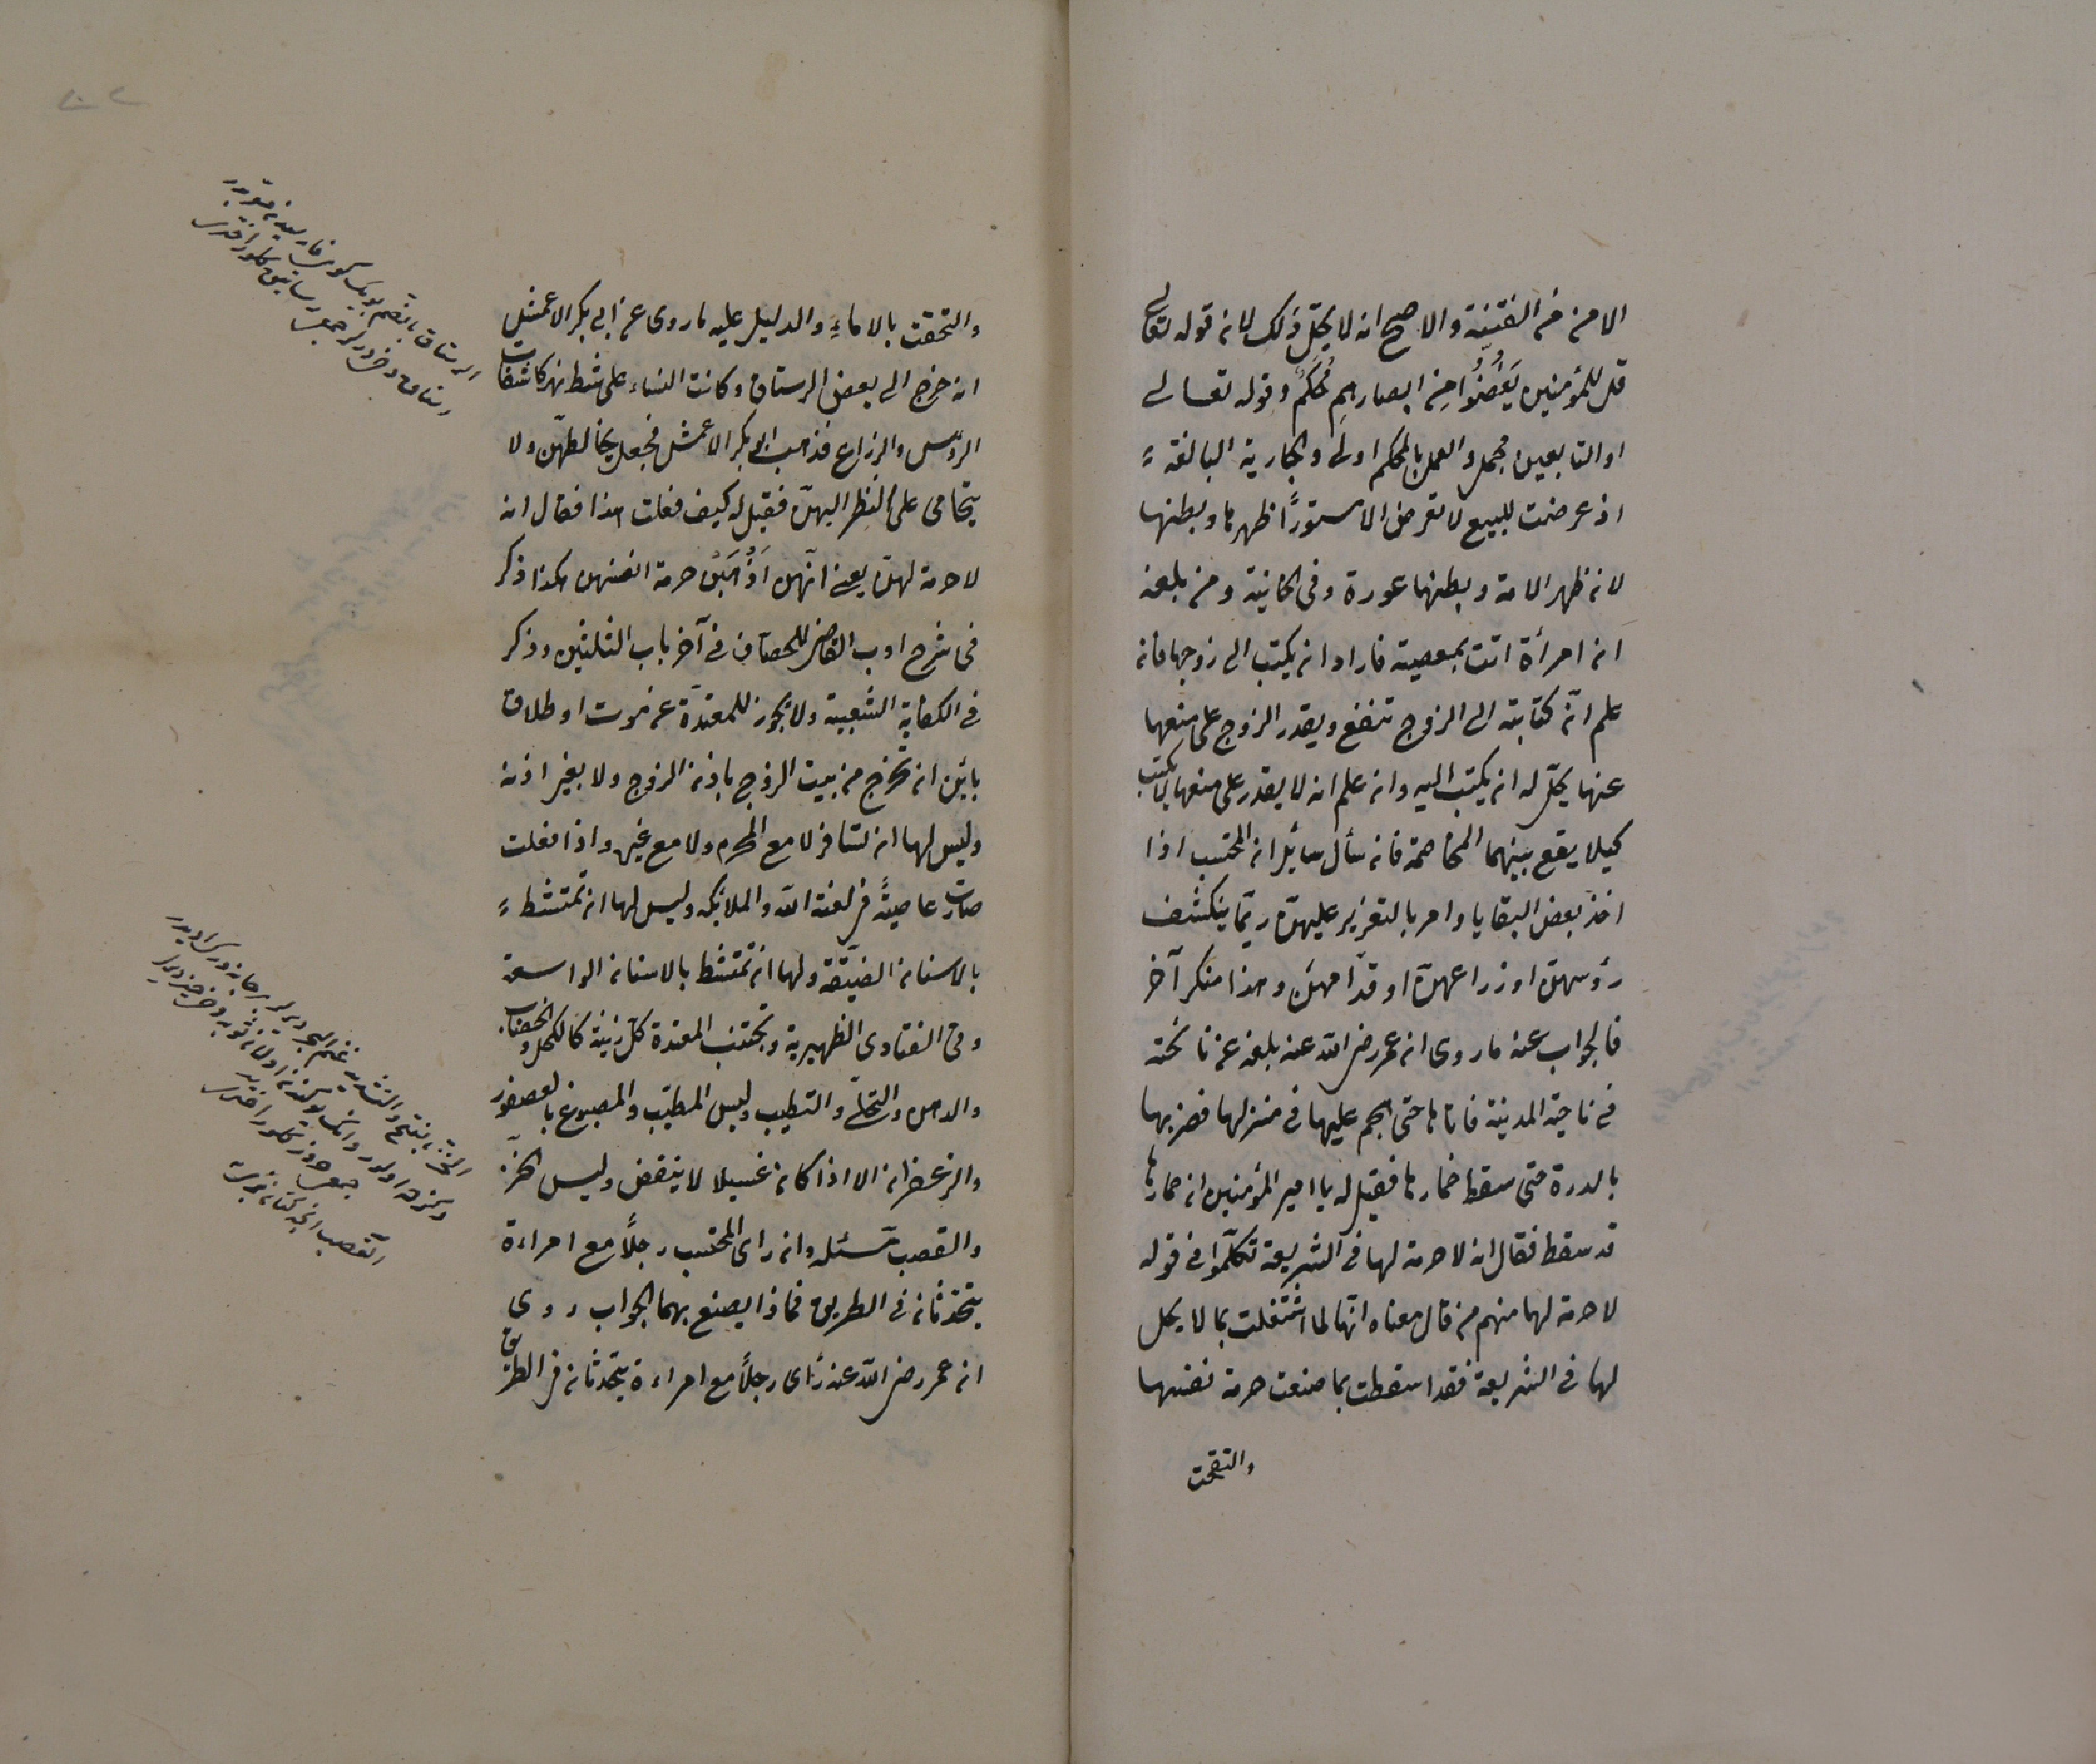 الامن من الفتنة والاصح انه لا يحلّ ذلك لان قوله تعالى
قل للمؤمنين يَغُضُّوا مِن ابصارهِم مُحْكَمٌ وقوله تعالى
او التابعين مجمل والعمل بالمحكم اولى والجارية البالغة
اذ عرضت للبيع لا تعرض الا مستورًا ظهرها وبطنها
لان ظهر الامة وبطنها عورة وفى الخانية ومن بلغه
ان امرأة اتت بمعصية فاراد ان يكتب الى زوجها فان
علم انّ كتابته الى الزوج تنفع ويقدر الزوج على منعها
عنها يحلّ له ان يكتب اليه وان علم انه لا يقدر على منعها لا يكتب
كيلا يقع بينهما المخاصمة فان سأل سائل ان المحتسب اذا
اخذ بعض البقايا وامر بالتعزير عليهنّ ربّما ينكشف
رؤسهنّ او ذراعهنّ او قدّامهنّ وهذا منكر آخر
فالجواب عنه ما روى ان عمر رضى الله عنه بلغه عن نائحة
فى ناحية المدينة فاتاها حتى هجم عليها فى منزلها فضربها
بالدرة حتى سقط خمارها فقيل له يا امير المؤمنين ان خمارها
قد سقط فقال ان لا حرمة لها فى الشريعة تكلّموا فى قوله
لا حرمة لها منهم من قال معناه انّها لما اشتغلت بما لا يحل
لها فى الشريعة فقد اسقطت بما صنعت حرمة نفسها
والتحقت
والتحقت بالاماءِ والدليل عليه ما روى عن ابى بكر الاعمش
انه خرج الى بعض الرستاق وكانت النساء على شط نهر كاشفات
الرؤس والزراع فذهب ابو بكر الاعمش فجعل يخالطهنّ ولا
يتحامى على النظر اليهنّ فقيل له كيف فعلت هذا فقال انه
لا حرمة لهنّ يعنى انّهنّ اَذْهَبْنَ حرمة انفسهن هكذا ذكر
فى شرح ادب القاضى للخصاف فى آخر باب الثلثين وذكر
فى الكفاية الشعبية ولا يجوز للمعتدّة عن موت او طلاق
بائن ان تخرج من بيت الزوج باذن الزوج ولا بغير اذنه
وليس لها ان تسافر لا مع المحرم ولا مع غيره واذا فعلت
صارت عاصيةً فى لعنة الله والملائكة وليس لها ان تمتشط
بالاسنان الضيّقة ولها ان تمتشط بالاسنان الواسعة
وفى الفتاوى الظهيرية وتجتنب المعتدة كلّ زينة كالكحل والخضاب
والدهن والتحلّى والتطيب ولبس المطيّب والمصبوغ بالعصفور
والزعفران الا اذا كان غسيلا لا ينفض ولبس الخزّ
والقصب مسئله وان راى المحتسب رجلاً مع امراءة
يتحدثان فى الطريق فماذا يصنع بهما الجواب روى
ان عمر رضى الله عنه رأى رجلاً مع امراءة يتحدثان فى الطريق